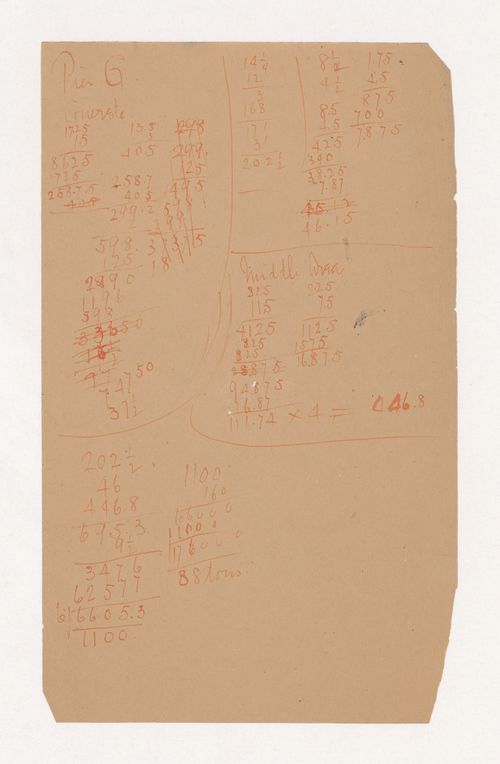 Pier G.
concrete
1725
15
8625
1725
258.75
13.5
3
405
258.7
40.5
299.2
2
598.
125
2990
1196
598
74750
37½
298
299.
125
495
598
299
37375
18
14¼
12
3
168
171
31
202½
8½
4½
8.5
4.5
425
340
38.25
7.87
46.15
175
45
875
700
7875
Middle Area
825
115
4125
825
825
94875
16.87
111.74 × 4 = 446.8
225
75
1125
1575
16875
202½.
46
446.8
695.3
9½
3476
62577
6) 6605.3
1100.
1100
160
66000
1100
176000
88 tons.